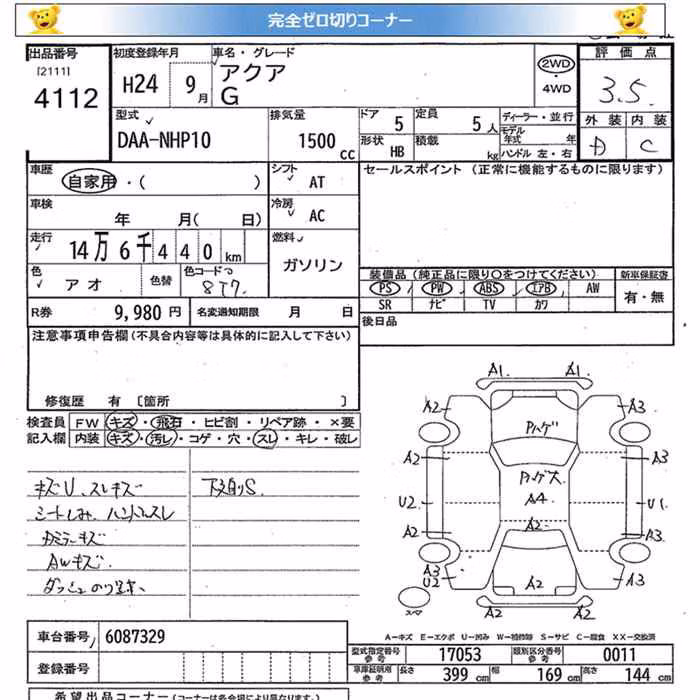 完全ゼロ切りコーナー
出品番号
[2111]
4112
初度登録年月
H24 9月
車名・グレード
アクア
G
2WD
4WD
評価点
3.5
外装 内装
D C
型式
DAA-NHP10
排気量
1500 cc
ドア 5
定員 5人
形状 HB
積載 kg
ディーラー・並行
モデル年式 年
ハンドル 左・右
車歴
自家用・( )
シフト
AT
セールスポイント (正常に機能するものに限ります)
車検
年 月( 日)
冷房
AC
走行
14万6千440km
燃料
ガソリン
色
アオ
色替
色コード
8T7
装備品(純正品に限り〇をつけてください)
新車保証書
PS PW ABS エアB AW
SR ナビ TV カワ
有・無
R券 9,980円
名変通知期限 月 日
後日品
注意事項申告欄(不具合内容等は具体的に記入して下さい)
修復歴 有 [箇所 ]
検査員記入欄
FW キズ・飛石・ヒビ割・リペア跡・×要
内装 キズ・汚レ・コゲ・穴・スレ・キレ・破レ
キズU、スレキズ
シートしみ、ハンドルスレ
下廻りS.
AWキズ
A1. A1.
A2 A3
Pハゲ
A2 A3
Pハゲ大
U2 A4 U1
A2
A2 A3
A3
U2
A2
A3
A2 A2
スペア
A-キズ E-エクボ U-凹み W-補修跡 S-サビ C-腐食 XX-交換済
車台番号 6087329
登録番号
型式指定番号 参考 17053
類別区分番号 参考 0011
車車証明用 参考
長さ 399cm
幅 169cm
高さ 144cm
希望出品コーナー